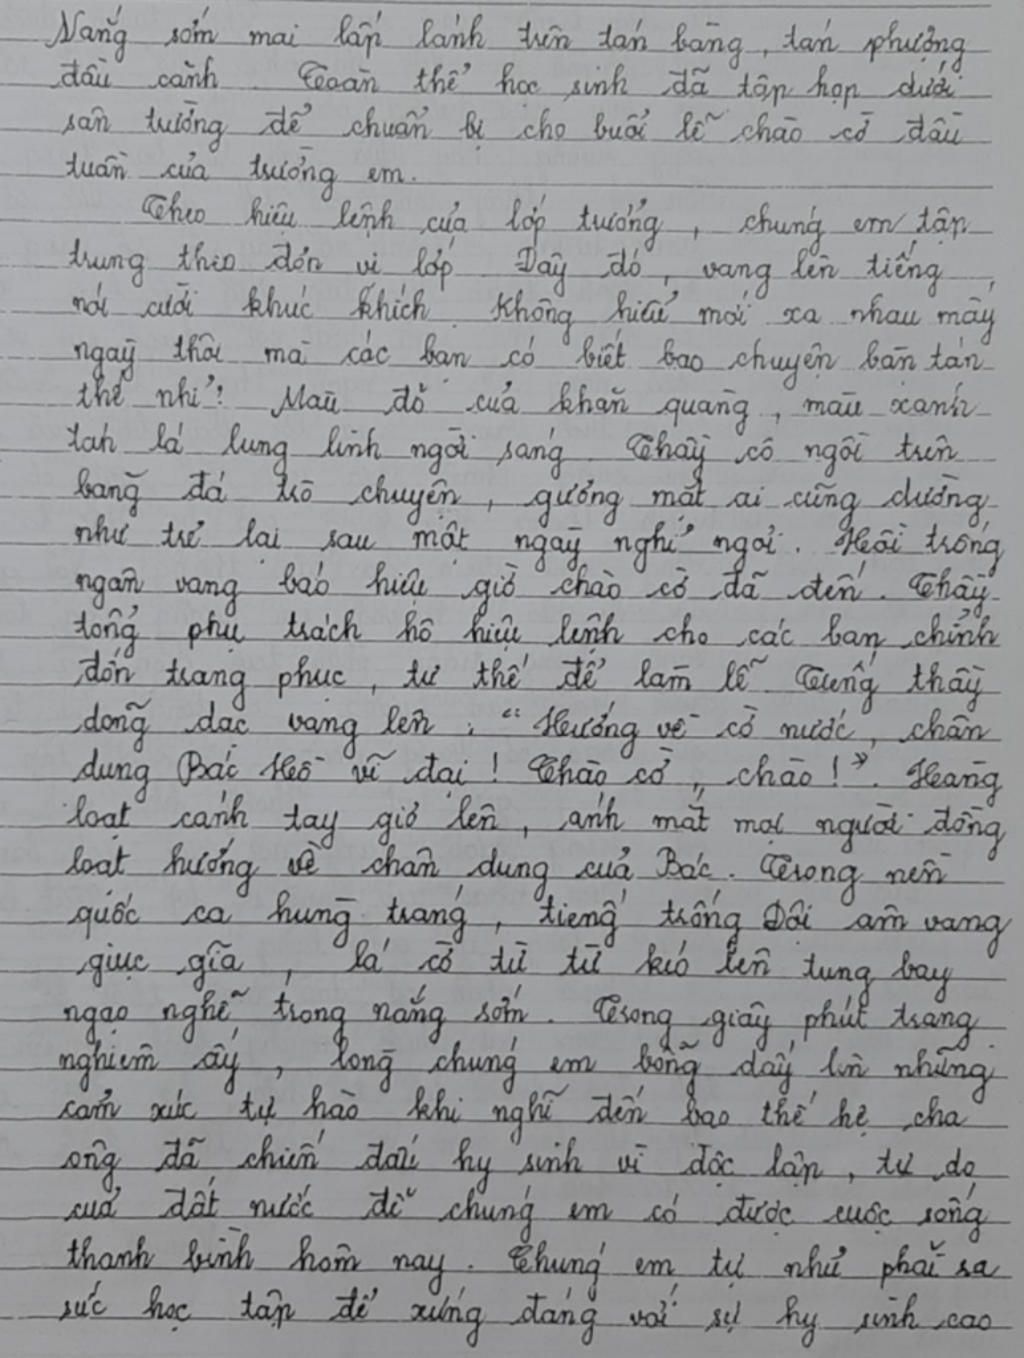 Nắng sớm mai lấp lánh trên tán bàng, tán phượng
đầu cành. Toàn thể học sinh đã tập hợp dưới
sân trường để chuẩn bị cho buổi lễ chào cờ đầu
tuần của trường em.
Theo hiệu lệnh của lớp trưởng, chúng em tập
trung theo đơn vị lớp Đây đó, vang lên tiếng
nói cười khúc khích. Không hiểu mới xa nhau mấy
ngày thôi mà các bạn có biết bao chuyện bàn tán
thế nhỉ? Màu đỏ của khăn quàng, màu xanh
tán lá lung linh ngời sáng. Thầy cô ngồi trên
băng đá trò chuyện, gương mặt ai cũng dường
như trẻ lại sau một ngày nghỉ ngơi. Hồi trống
ngân vang báo hiệu giờ chào cờ đã đến. Thầy
tổng phụ trách hô hiệu lệnh cho các bạn chỉnh
đốn trang phục, tư thế để làm lễ. Tiếng thầy
dõng dạc vang lên: "Hướng về cờ nước, chân
dung Bác Hồ vĩ đại! Chào cờ, chào!". Hàng
loạt cánh tay giơ lên, ánh mắt mọi người đồng
loạt hướng về chân dung của Bác. Trong nền
quốc ca hùng tráng, tiếng trống Đội âm vang
giục giã, lá cờ từ từ kéo lên tung bay
ngạo nghễ trong nắng sớm. Trong giây phút trang
nghiêm ấy, lòng chúng em bỗng dấy lên những
cảm xúc tự hào khi nghĩ đến bao thế hệ cha
ông đã chiến đấu hy sinh vì độc lập, tự do
của đất nước để chúng em có được cuộc sống
thanh bình hôm nay. Chúng em tự nhủ phải ra
sức học tập để xứng đáng với sự hy sinh cao